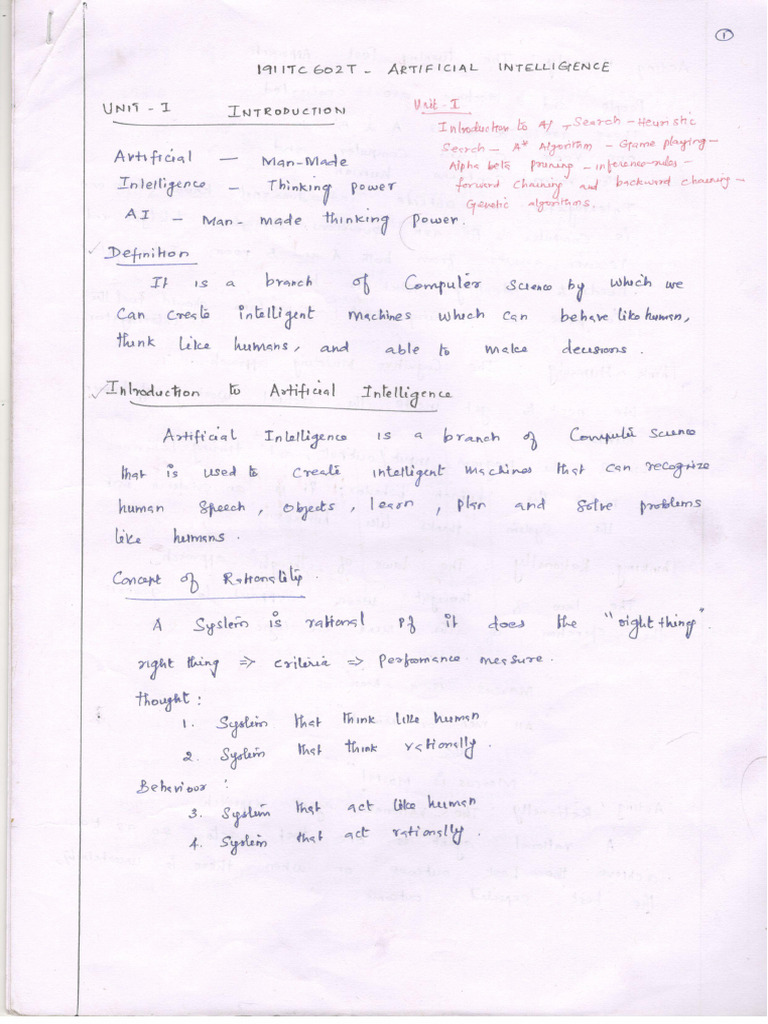 1
1911TC602T - ARTIFICIAL INTELLIGENCE
UNIT - I INTRODUCTION
Unit - I
Introduction to AI - Search - Heuristic
Search - A* Algorithm - Game playing -
Alpha beta pruning - inference-rules -
forward Chaining and backward chaining -
Genetic algorithms.
Artificial — Man-Made
Intelligence - Thinking power
AI - Man-made thinking power.
Definition
It is a branch of Computer Science by which we
Can create intelligent machines which can behave like human,
think like humans, and able to make decisions.
Introduction to Artificial Intelligence
Artificial Intelligence is a branch of Computer Science
that is used to create intelligent machines that can recognize
human speech, objects, learn, plan and solve problems
like humans.
Concept of Rationality.
A System is rational if it does the "right thing".
right thing => criteria => Performance measure.
thought :
1. System that think like human
2. System that think rationally.
Behaviour :
3. System that act like human
4. System that act rationally.